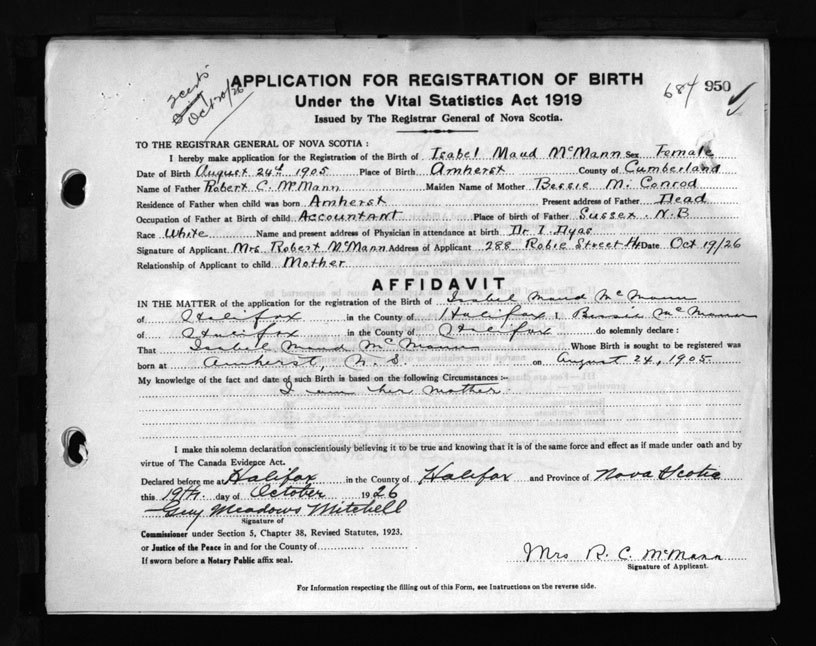 Oct 20/26
684 950
APPLICATION FOR REGISTRATION OF BIRTH
Under the Vital Statistics Act 1919
Issued by The Registrar General of Nova Scotia.
TO THE REGISTRAR GENERAL OF NOVA SCOTIA :
I hereby make application for the Registration of the Birth of Isabel Maud McMann Sex Female
Date of Birth August 24th 1905 Place of Birth Amherst County of Cumberland
Name of Father Robert C. McMann Maiden Name of Mother Bessie M. Conrod
Residence of Father when child was born Amherst Present address of Father Dead
Occupation of Father at Birth of child Accountant Place of birth of Father Sussex. N.B
Race White Name and present address of Physician in attendance at birth Dr I. Dyas
Signature of Applicant Mrs Robert McMann Address of Applicant 288 Robie Street Hx Date Oct 19/26
Relationship of Applicant to child Mother
AFFIDAVIT
IN THE MATTER of the application for the registration of the Birth of Isabel Maud McMann
of Halifax in the County of Halifax I, Bessie McMann
of Halifax in the County of Halifax do solemnly declare :
That Isabel Maud McMann Whose Birth is sought to be registered was
born at Amherst, N. S. on August 24, 1905
My knowledge of the fact and date of such Birth is based on the following Circumstances :-
I am her mother
I make this solemn declaration conscientiously believing it to be true and knowing that it is of the same force and effect as if made under oath and by
virtue of The Canada Evidence Act.
Declared before me at Halifax in the County of Halifax and Province of Nova Scotia
this 19th day of October 1926
Guy Meadows Mitchell
Signature of
Commissioner under Section 5, Chapter 38, Revised Statutes, 1923,
or Justice of the Peace in and for the County of
If sworn before a Notary Public affix seal.
Mrs R. C. McMann
Signature of Applicant.
For Information respecting the filling out of this Form, see Instructions on the reverse side.